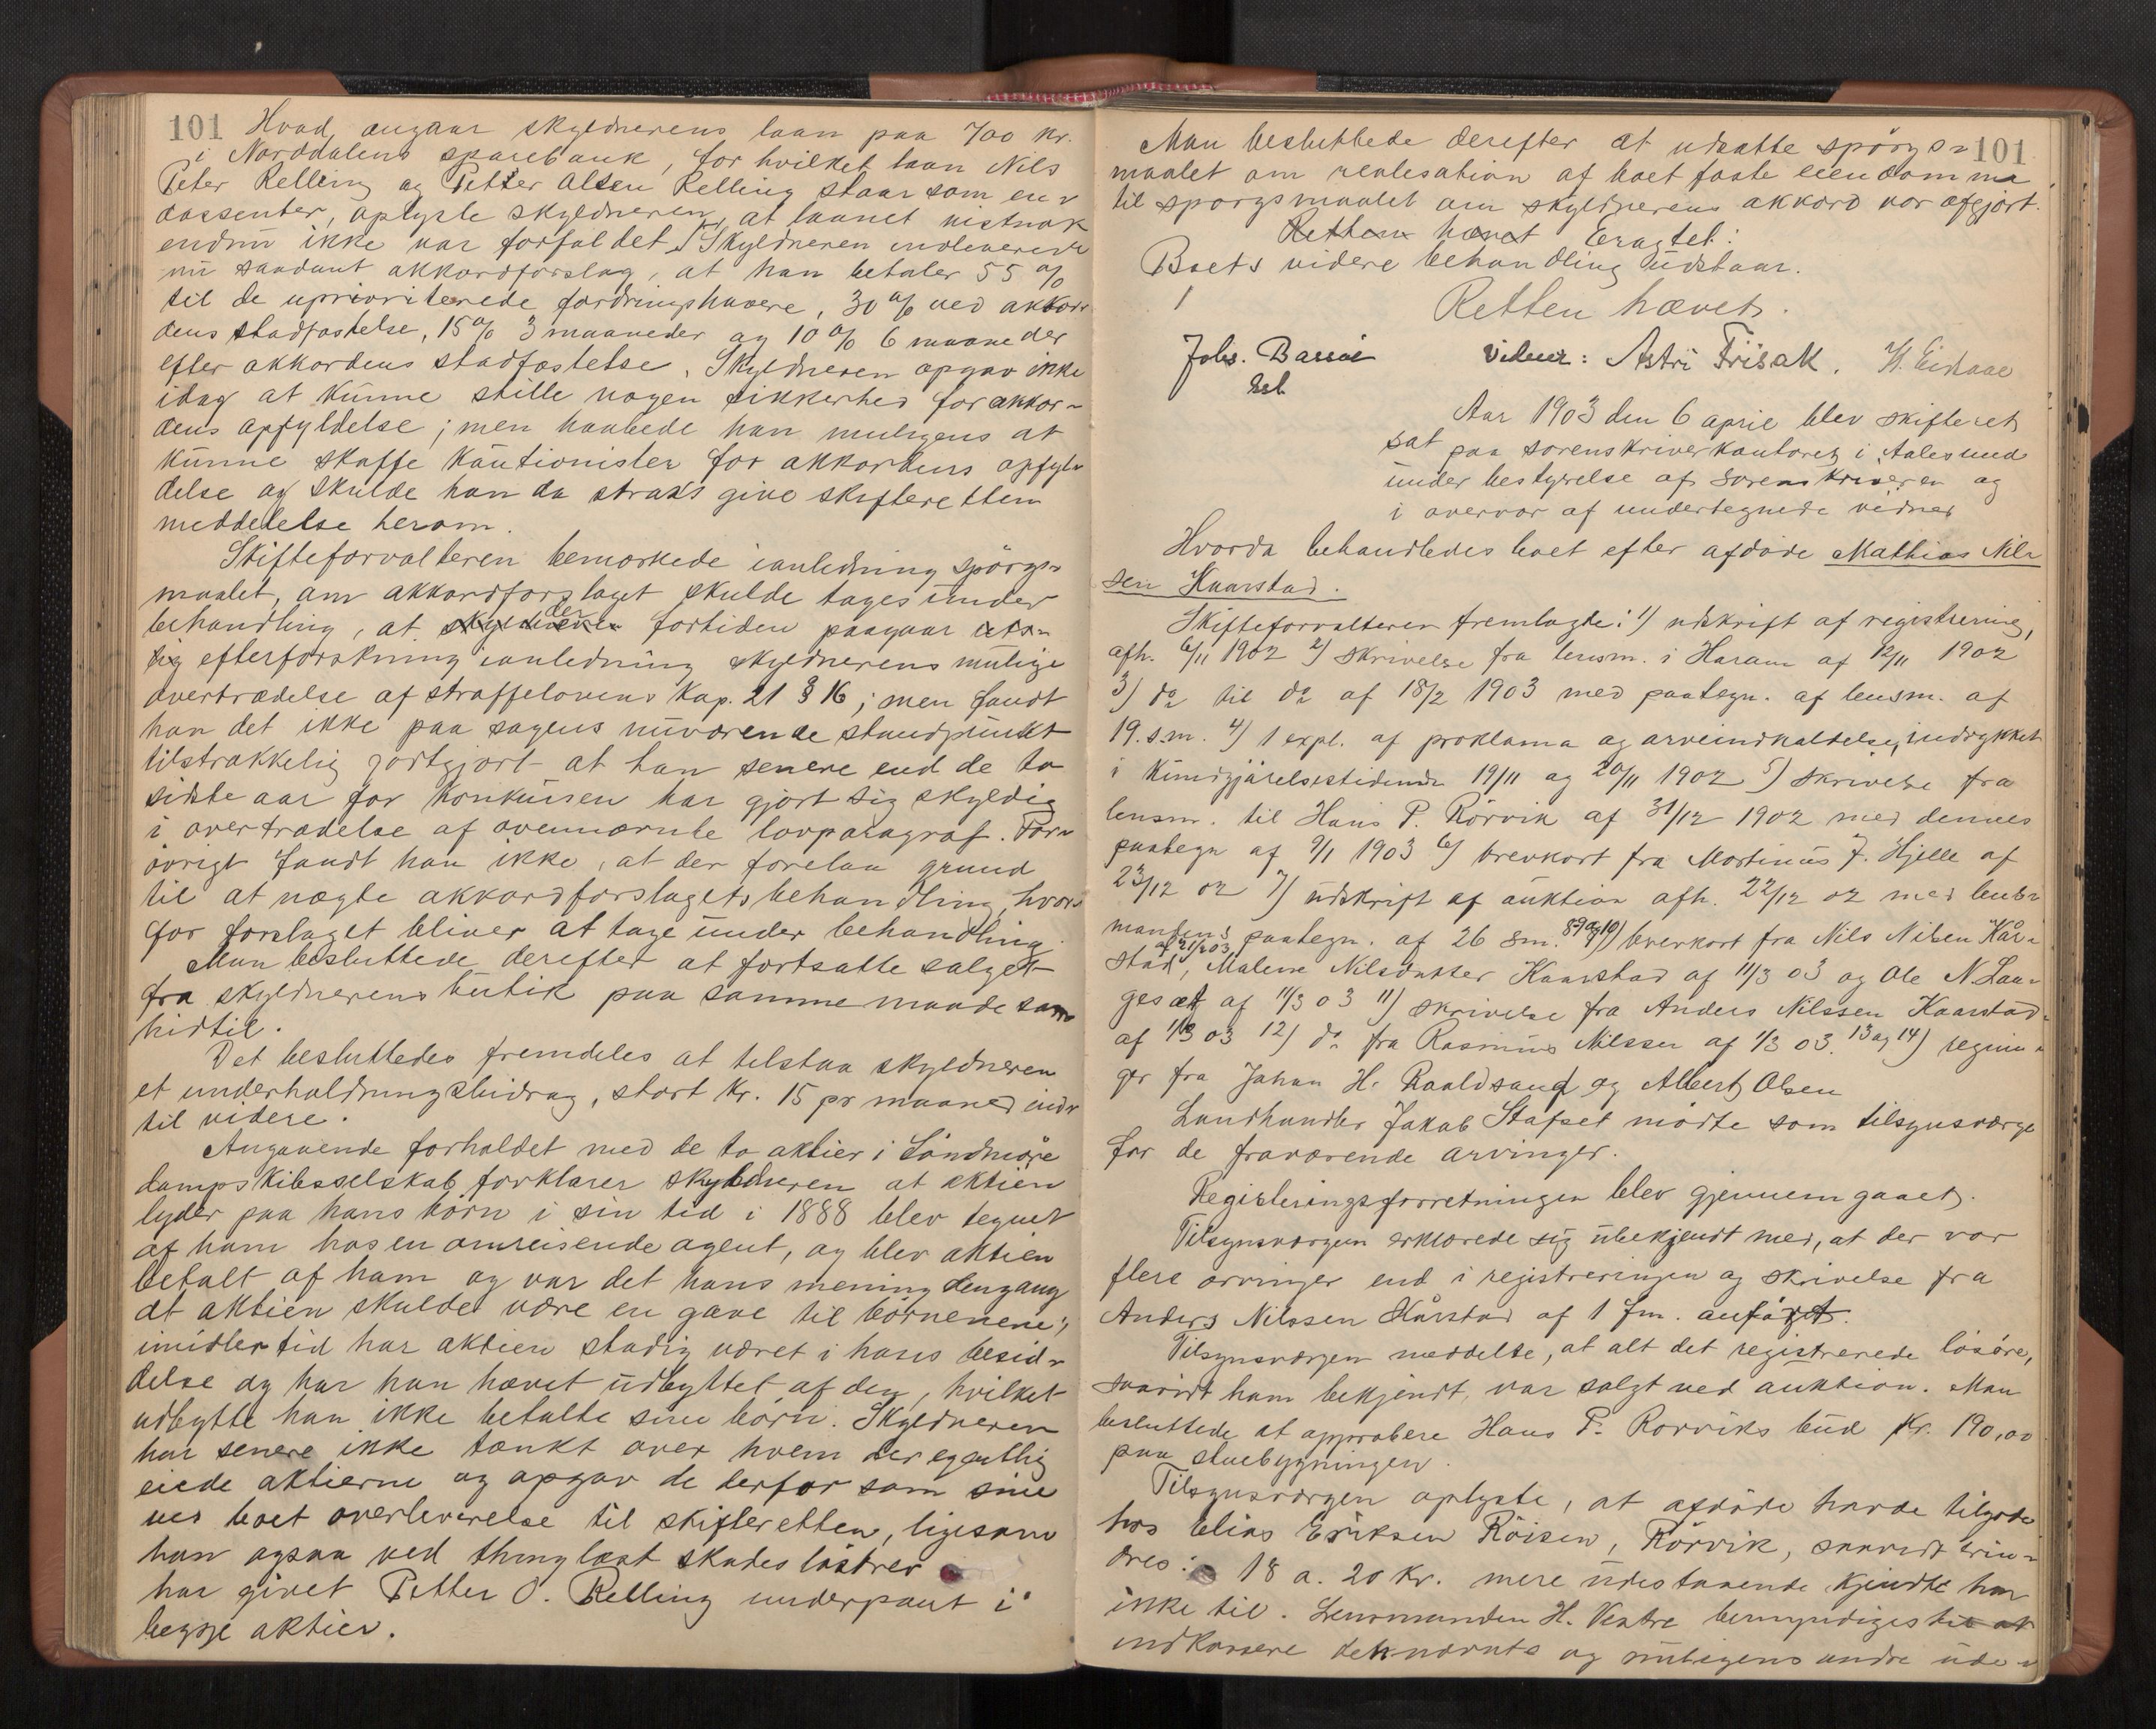 101 Hvad angaar skyldnerens laan paa 700 kr.
i Norddalens sparebank, for hvilket laan Nils
Peter Relling og Petter Olsen Relling staar som en-
dossenter, oplyste skyldneren, at laanet vistnok
endnu ikke var forfaldet. Skyldneren indleverede
nu saadant akkordforslag, at han betaler 55 %
til de uprioriterede fordringshavere, 30 % ved akkor-
dens stadfæstelse, 15 % 3 maaneder og 10 % 6 maaneder
efter akkordens stadfæstelse. Skyldneren opgav ikke
idag at kunne stille nogen sikkerhed for akkor-
dens opfyldelse; men haabede han muligens at
kunne skaffe kautionister for akkordens opfyl-
delse og skulde han da straks give skifteretten
meddelelse herom.
Skifteforvalteren bemærkede ianledning spörgs-
maalet, om akkordforslaget skulde tages under
behandling, at skyldneren der fortiden paagaar
efterforskning ianledning skyldnerens mulige
overtrædelse af straffelovens Kap. 21 § 16; men fandt
han det ikke paa sagens nuværende standpunkt
tilstrækkelig godtgjort at han senere end de to
sidste aar før konkursen har gjort sig skyldig
i overtrædelse af ovennævnte lovparagraf. For-
övrigt fandt han ikke, at der forelaa grund
til at nægte akkordforslagets behandling, hvor-
for forslaget bliver at tage under behandling.
Man besluttede derefter at fortsætte salget
fra skyldnerens butik paa samme maade som
hidtil.
Det besluttedes fremdeles at tilstaa skyldneren
et underholdningsbidrag, stort kr. 15 pr maaned ind-
til videre.
Angaaende forholdet med de to aktier i Söndmøre
dampskibsselskab forklarer skyldneren at aktien
lyder paa hans børn i sin tid i 1888 blev tegnet
af ham hos en omreisende agent, og blev aktien
betalt af ham og var det hans mening dengang
at aktien skulde være en gave til börnenene;
imidlertid har aktien stadig været i hans besid-
delse og har han hævet udbyttet af den, hvilket
udbytte han ikke betalte sine börn. Skyldneren
har senere ikke tænkt over hvem der egentlig
eiede aktierne og opgav de derfor som sine
ved boet overleverelse til skifteretten, ligesom
han ogsaa ved thinglæst skadesløsbrev
har givet Petter O. Relling underpant i
begge aktier.
Man besluttede derefter at udsætte spörgs- 101
maalet om realisation af boet faste eiendomme
til spörgsmaalet om skyldnerens akkord var afgjort.
Retten hævet Eragtet:
Boets videre behandling udstaar.
Retten hævet.
Johs. Bassøe vidner: Astri Frisak. H. Eidsaae
Aar 1903 den 6 april blev skifteret
sat paa sorenskriverkontoret i Aalesund
under bestyrelse af sorenskriveren og
i overvær af undertegnede vidner
Hvorda behandledes boet efter afdøde Mathias Nil-
sen Kaarstad.
Skifteforvalteren fremlagde: 1) udskrift af registrering,
afh. 6/11 1902 2) skrivelse fra lensm. i Haram af 12/11 1902
3) do til do af 18/2 1903 med paategn. af lensm. af
19. s.m. 4) 1 expl. af proklama og arveindkaldelse, indrykket
i Kundgjørelsestidende 19/11 og 20/11 1902 5) skrivelse fra
lensm. til Hans P. Rörvik af 31/12 1902 med dennes
paategn af 9/1 1903 6) brevkort fra Martinus J. Hjelle af
23/12 02 7) udskrift af auktion afh. 22/12 02 med lens-
mandens paategn. af 26 s.m. 8 9 og 10) brevkort fra Nils Nilsen Kår-
stad af 21/2 03, Malene Nilsdatter Kaarstad af 11/3 03 og Ole N. Lan-
gesæt af 11/3 03 11) skrivelse fra Anders Nilssen Kaarstad
af 1/3 03 12) do fra Rasmus Nilssen af 1/3 03. 13 og 14) regnin-
ger fra Johan H. Raaldsand og Albert Olsen
Landhandler Jakob Stafset mødte som tilsynsværge
for de fraværende arvinger.
Registeringsforretningen blev gjennemgaaet.
Tilsynsværgen erklærede sig ubekjendt med, at der var
flere arvinger end i registreringen og skrivelse fra
Anders Nilssen Kårstad af 1 f.m. anført.
Tilsynsværgen meddelte, at alt det registrerede løsøre,
saavidt ham bekjendt, var solgt ved auktion. Man
besluttede at approbere Hans P. Rørviks bud Kr. 190,00
paa stuebygningen.
Tilsynsværgen oplyste, at afdøde havde tilgode
hos Elias Eriksen Röisen, Rörvik, saavidt erin-
dres: 18 a. 20 kr. mere udestaaende kjendte han
ikke til. Lensmanden H. Vestre bemyndiges til at
indkassere det nævnte og muligens andre ude-